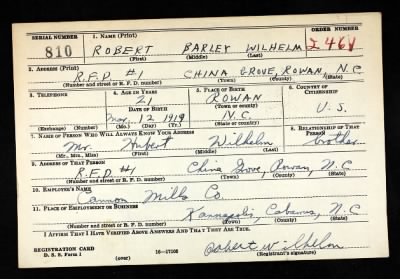 SERIAL NUMBER 1. NAME (Print) ORDER NUMBER
810 ROBERT BARLEY WILHELM I 468
(First) (Middle) (Last)
2. ADDRESS (Print)
R.F.D #1 CHINA GROVE, ROWAN, N.C
(Number and street or R. F. D. number) (Town) (County) (State)
3. TELEPHONE 4. AGE IN YEARS 5. PLACE OF BIRTH 6. COUNTRY OF CITIZENSHIP
21 ROWAN
DATE OF BIRTH (Town or county)
Mar, 12 1919 N.C. U.S.
(Exchange) (Number) (Mo.) (Day) (Yr.) (State or country)
7. NAME OF PERSON WHO WILL ALWAYS KNOW YOUR ADDRESS 8. RELATIONSHIP OF THAT PERSON
Mr. Hubert Wilhelm brother
(Mr., Mrs., Miss) (First) (Middle) (Last)
9. ADDRESS OF THAT PERSON
R.F.D #1 China Grove, Rowan, N.C
(Number and street or R. F. D. number) (Town) (County) (State)
10. EMPLOYER'S NAME
Cannon Mills Co.
11. PLACE OF EMPLOYMENT OR BUSINESS
Kannapolis, Cabarrus, N.C
(Number and street or R. F. D. number) (Town) (County) (State)
I AFFIRM THAT I HAVE VERIFIED ABOVE ANSWERS AND THAT THEY ARE TRUE.
REGISTRATION CARD Robert Wilhelm
D. S. S. Form 1 (over) 16—17105 (Registrant's signature)